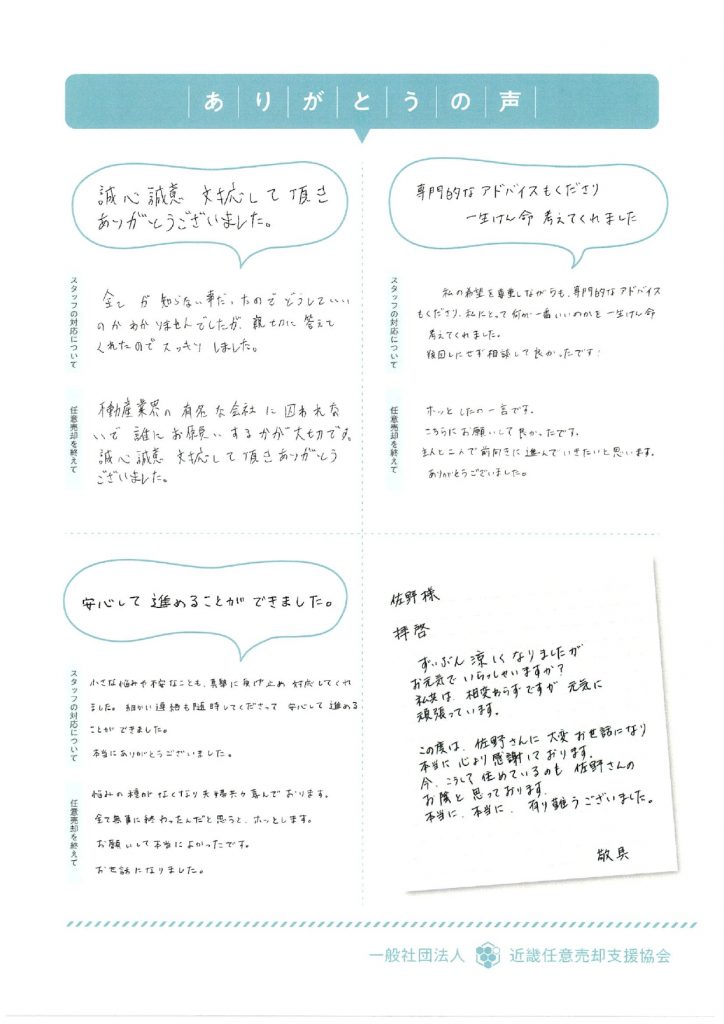 ありがとうの声
誠心誠意 対応して頂き
ありがとうございました。
スタッフの対応について
全て が 知らない事だったので どうしていい
のか わか りませんでしたが、親切に 答えて
くれたので スッキリ しました。
任意売却を終えて
不動産業界の 有名 な会社 に 囚われな
いで 誰に お願い するかが 大切です。
誠心誠意 対応して 頂き ありがとう
ございました。
専門的な アドバイスもくださり
一生けん命 考えてくれました
スタッフの対応について
私の希望を尊重しながらも、専門的なアドバイス
もくださり、私にとって何が一番いいのかを一生けん命
考えてくれました。
後回しにせず相談して良かったです!
任意売却を終えて
ホッと したの一言です。
こちらにお願いして良かったです。
主人と二人で前向きに進んでいきたいと思います。
ありがとうございました。
安心して 進めることが できました。
スタッフの対応について
小さな悩みや不安なことも、真摯に受け止め 対応してくれ
ました。細かい連絡も随時してくださって 安心して進める
ことが できました。
本当にありがとうございました。
任意売却を終えて
悩みの種がなくなり夫婦共々喜んでおります。
全て無事に終わったんだと思うと、ホッとします。
お願いして本当によかったです。
お世話になりました。
佐野様
拝啓
ずいぶん涼しくなりましたが
お元気でいらっしゃいますか?
私共は、相変わらずですが 元気に
頑張っています。
この度は、佐野さんに大変お世話になり
本当に心より感謝しております。
今、こうして住めているのも 佐野さんの
お陰と思っております。
本当に、本当に、有り難うございました。
敬具
一般社団法人 近畿任意売却支援協会